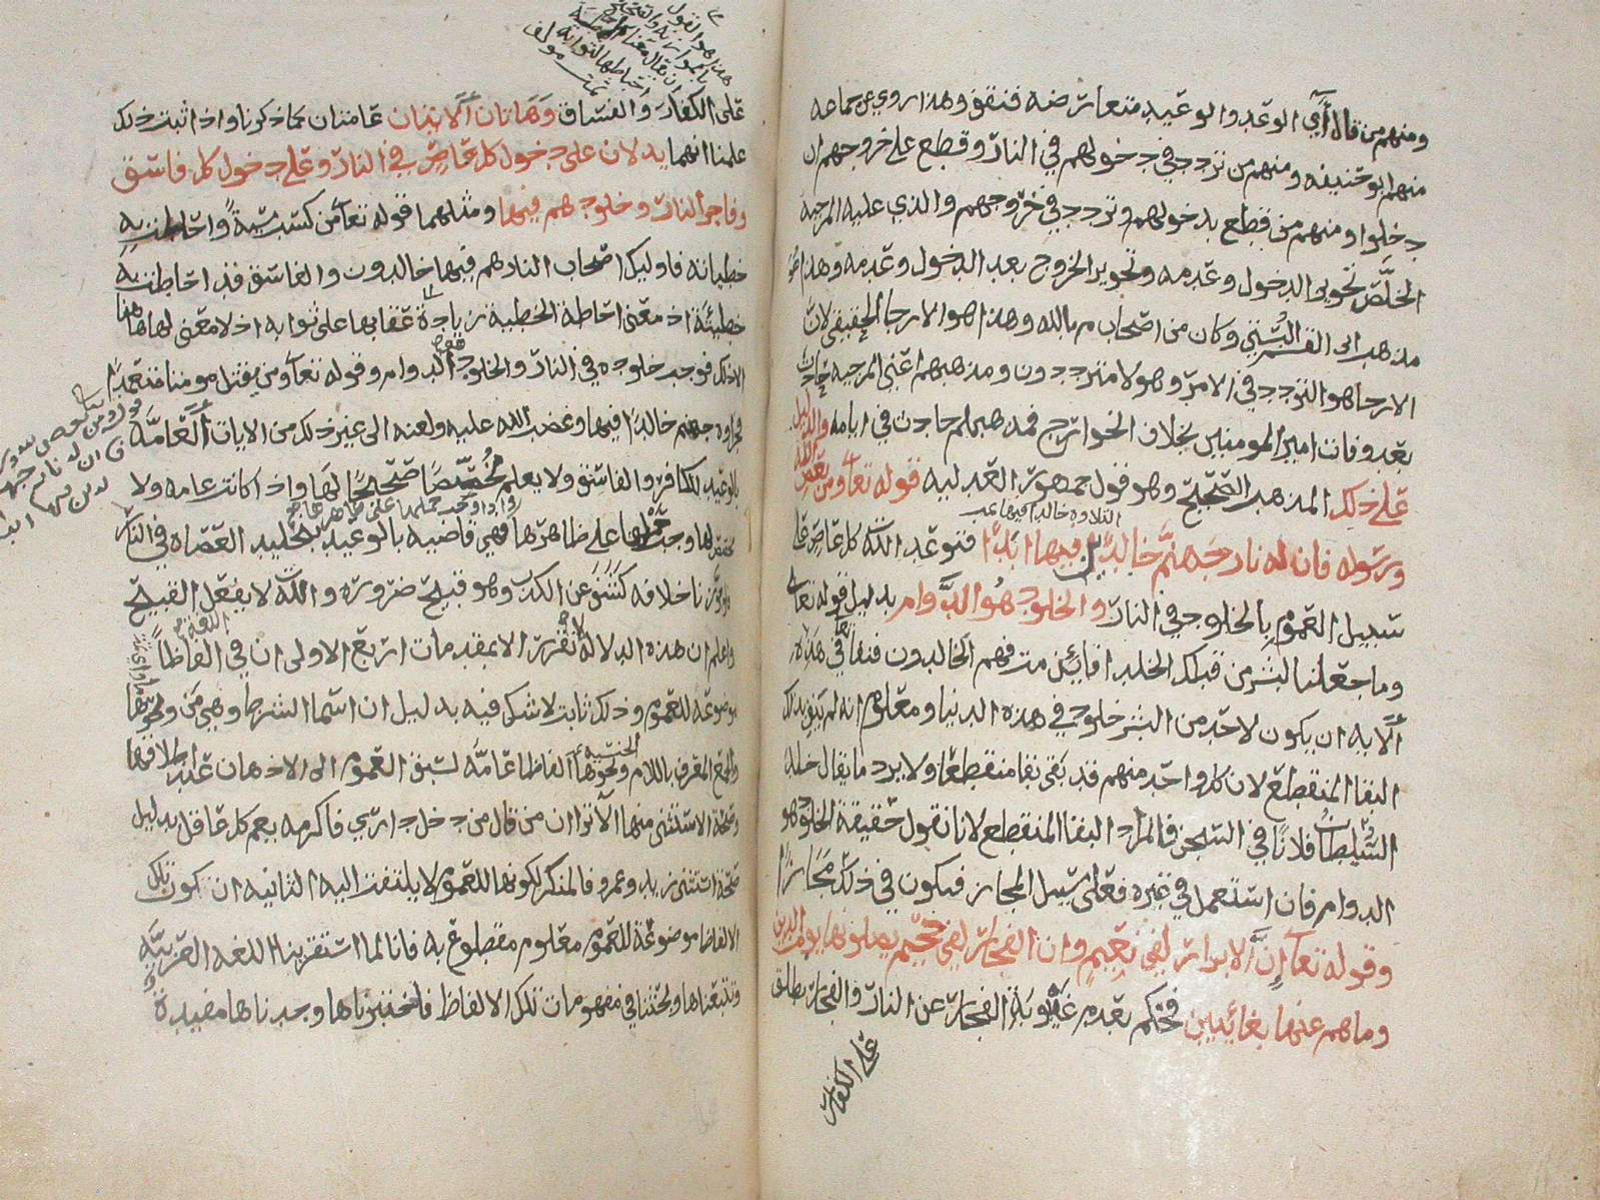 ومنهم من قال أي الوعد والوعيد متعارضه فنقف وهذا روي عن جماعه
منهم ابو حنيفه ومنهم من تردد في دخولهم في النار وقطع على خروجهم ان
دخلوا ومنهم من قطع بدخولهم وتردد في خروجهم والذي عليه المرجيه
الخلص تجويز الدخول وعدمه وتجويز الخروج بعد الدخول وعدمه وهذا هو
مذهب ابى القسم البستي وكان من اصحاب م بالله وهذا هو الارجا الحقيقي لان
الارجا هو التردد في الامر وهولا مترددون ومذهبهم اعني المرجيه حادث
بعد وفات امير المومنين بخلاف الخوارج فمذهبهم حادث في ايامه والدليل
على ذلك المذهب الصحيح وهو قول جمهور العدليه قوله تعا ومن يعص الله
التلاوه خالدا فيها
ورسوله فان له نار جهنم خالدين فيها ابدا فتوعد الله كل عاص على
سبيل العموم بالخلود في النار والخلود هو الدوام بدليل قوله تعا
وما جعلنا لبشر من قبلك الخلد افائن مت فهم الخالدون فنفا في هذه
الايه ان يكون لاحد من البشر خلود في هذه الدنيا ومعلوم انه لم ينف بذلك
البقا المنقطع لان كل واحد منهم قد بقى بقا منقطعا ولا يرد ما يقال خلد
السلطان فلانا في السجن فالمراد البقا المنقطع لانا نقول حقيقة الخلود هو
الدوام فان استعمل في غيره فعلى سبيل المجاز فيكون في ذلك مجازا
وقوله تعا إن الابرار لفي نعيم وان الفجار لفي جحيم يصلونها يوم الدين
وما هم عنها بغائبين فحكم بعدم غيبوبة الفجار عن النار والفجار يطلق
على الكفار
على الكفار والفساق وهاتان الايتان عامتان كما ذكرنا واذا ثبت ذلك
علمنا انهما يدلان على دخول كل عاص في النار وعلى دخول كل فاسق
وفاجر النار وخلودهم فيها ومثلهما قوله تعا من كسب سيئة واحاطت به
خطيئاته فاوليك اصحاب النار هم فيها خالدون والفاسق قد احاطت به
خطيئته اذ معنى احاطة الخطية زيادة عقابها على ثوابه اذ لا معنى لها هاهنا
الا ذلك فوجب خلوده في النار والخلود الدوام وقوله تعا ومن يقتل مومنا متعمدا
فجزاوه جهنم خالدا فيها وغضب الله عليه ولعنه الى غير ذلك من الايات العامة
بالوعيد للكافر والفاسق ولا يعلم مخصصا صحيحا لها واذا كانت عامه ولا
مخصص لها وجب حملها على ظاهرها فهي قاضيه بالوعيد بتخليد العصاه في النار
ولو جوزنا خلافه كشف عن الكذب وهو قبيح ضروره والله لا يفعل القبيح
واعلم ان هذه الدلاله لا تقرر الا بمقدمات اربع الاولى ان في اللغة الفاظا
موضوعه للعموم وذلك ثابت لا شك فيه بدليل ان اسما الشرط وهي من ونحوها
والجمع المعرف باللام الجنسيه ونحوها الفاظا عامة لسبق العموم الى الاذهان عند اطلاقها
وصحة الاستثنى منها الا ترا ان من قال من دخل داري فاكرمه يعم كل عاقل بدليل
صحة استثنى زيد وعمرو فالمنكر لكونها للعموم لا يلتفت اليه الثانيه ان كون تلك
الالفاظ موضوعة للعموم معلوم مقطوع به فانا لما استقرينا اللغه العربيه
وتتبعناها وبحثنا في مفهومات تلك الالفاظ فاختبرناها وجدناها مفيدة